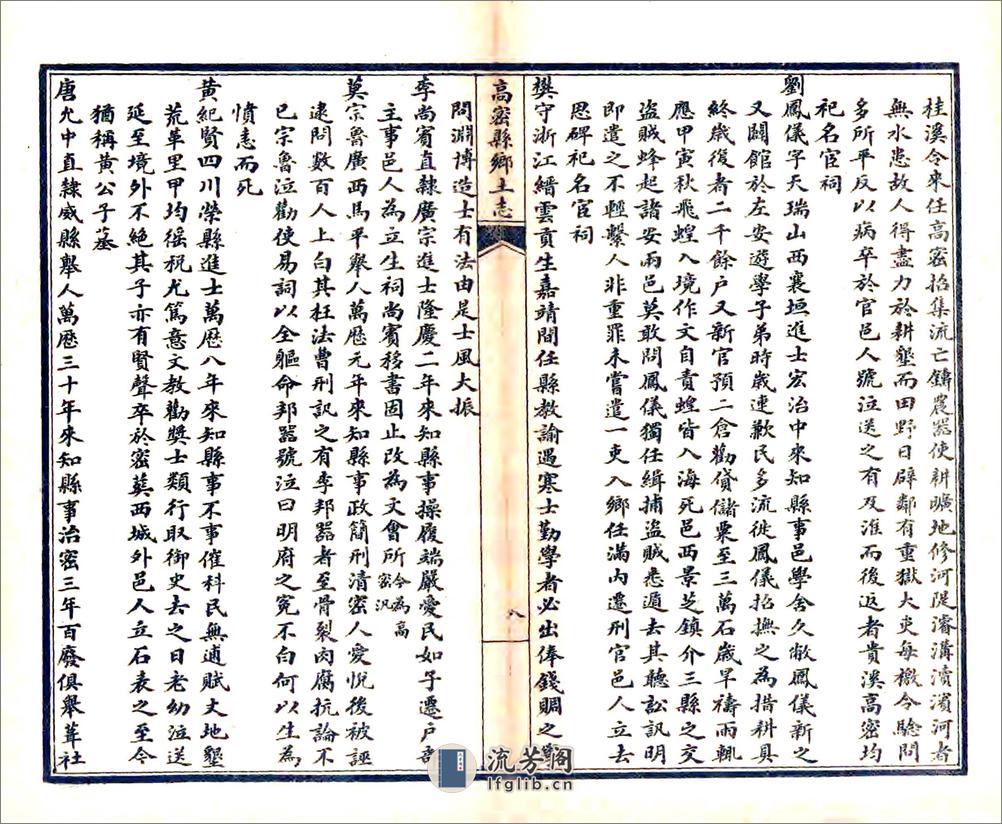 桂溪令來任高密招集流亡鑄農器使耕曠地修河隄濬溝瀆濱河者
無水患故人得盡力於耕墾而田野日闢鄰有重獄大吏每檄令驗問
多所平反以病卒於官邑人號泣送之有及淮而後返者貴溪高密均
祀名宦祠
劉鳳儀字天瑞山西襄垣進士宏治中來知縣事邑學舍久敝鳳儀新之
又闢館於左安遊學子弟時歲連歉民多流徙鳳儀招撫之為措耕具
終歲復者二千餘戶又新官預二倉勸貸儲粟至三萬石歲旱禱雨輒
應甲寅秋飛蝗入境作文自責蝗皆入海死邑西景芝鎮介三縣之交
盜賊蜂起諸安兩邑莫敢問鳳儀獨任緝捕盜賊悉遁去其聽訟訊明
即遣之不輕繫人非重罪未嘗遣一吏入鄉任滿內遷刑官邑人立去
思碑祀名宦祠
樊守浙江縉雲貢生嘉靖間任縣教諭遇寒士勤學者必出俸錢賙之
高密縣鄉土志
八
問淵博造士有法由是士風大振
李尚賓直隸廣宗進士隆慶二年來知縣事操履端嚴愛民如子遷戶部
主事邑人為立生祠尚賓移書固止改為文會所今為高密汛
莫宗魯廣西馬平舉人萬歷元年來知縣事政簡刑清密人愛悅後被誣
逮問數百人上白其枉法曹刑訊之有李邦器者至骨裂肉腐抗論不
已宗魯泣勸使易詞以全軀命邦器號泣曰明府之冤不白何以生為
憤恚而死
黃紀賢四川榮縣進士萬歷八年來知縣事不事催科民無逋賦丈地墾
荒革里甲均徭稅尤篤意文教勸獎士類行取御史去之日老幼泣送
延至境外不絕其子亦有賢聲卒於密葬西城外邑人立石表之至今
猶稱黃公子墓
唐允中直隸威縣舉人萬歷三十年來知縣事治密三年百廢俱舉葺社
流芳閣
lfglib.cn